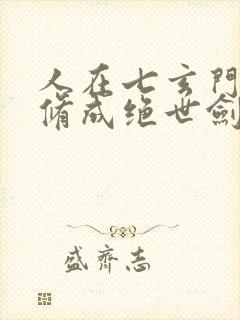 人在七玄門
脩成绝世劍
盛齊志